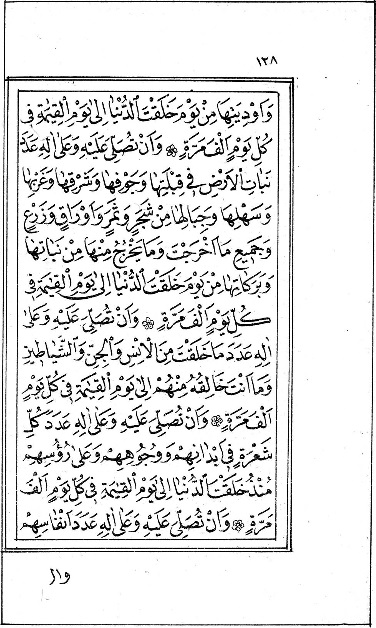 ١٢٨
وَاَوْدِيَتِهَا مِنْ يَوْمِ خَلَقْتَ الدُّنْيَا اِلٰى يَوْمِ الْقِيٰمَةِ فِى
كُلِّ يَوْمٍ اَلْفَ مَرَّةٍ وَاَنْ تُصَلِّىَ عَلَيْهِ وَعَلٰى اٰلِهٖ عَدَدَ
نَبَاتِ الْاَرْضِ فِى قِبْلَتِهَا وَجَوْفِهَا وَشَرْقِهَا وَغَرْبِهَا
وَسَهْلِهَا وَجِبَالِهَا مِنْ شَجَرٍ وَثَمَرٍ وَاَوْرَاقٍ وَزَرْعٍ
وَجَمِيْعِ مَا اَخْرَجَتْ وَمَا يَخْرُجُ مِنْهَا مِنْ نَبَاتِهَا
وَبَرَكَاتِهَا مِنْ يَوْمِ خَلَقْتَ الدُّنْيَا اِلٰى يَوْمِ الْقِيٰمَةِ فِى
كُلِّ يَوْمٍ اَلْفَ مَرَّةٍ وَاَنْ تُصَلِّىَ عَلَيْهِ وَعَلٰى
اٰلِهٖ عَدَدَ مَا خَلَقْتَ مِنَ الْاِنْسِ وَالْجِنِّ وَالشَّيَاطِيْنِ
وَمَا اَنْتَ خَالِقُهٗ مِنْهُمْ اِلٰى يَوْمِ الْقِيٰمَةِ فِى كُلِّ يَوْمٍ
اَلْفَ مَرَّةٍ وَاَنْ تُصَلِّىَ عَلَيْهِ وَعَلٰى اٰلِهٖ عَدَدَ كُلِّ
شَعْرَةٍ فِى اَبْدَانِهِمْ وَوُجُوْهِهِمْ وَعَلٰى رُؤُسِهِمْ
مُنْذُ خَلَقْتَ الدُّنْيَا اِلٰى يَوْمِ الْقِيٰمَةِ فِى كُلِّ يَوْمٍ اَلْفَ
مَرَّةٍ وَاَنْ تُصَلِّىَ عَلَيْهِ وَعَلٰى اٰلِهٖ عَدَدَ اَنْفَاسِهِمْ